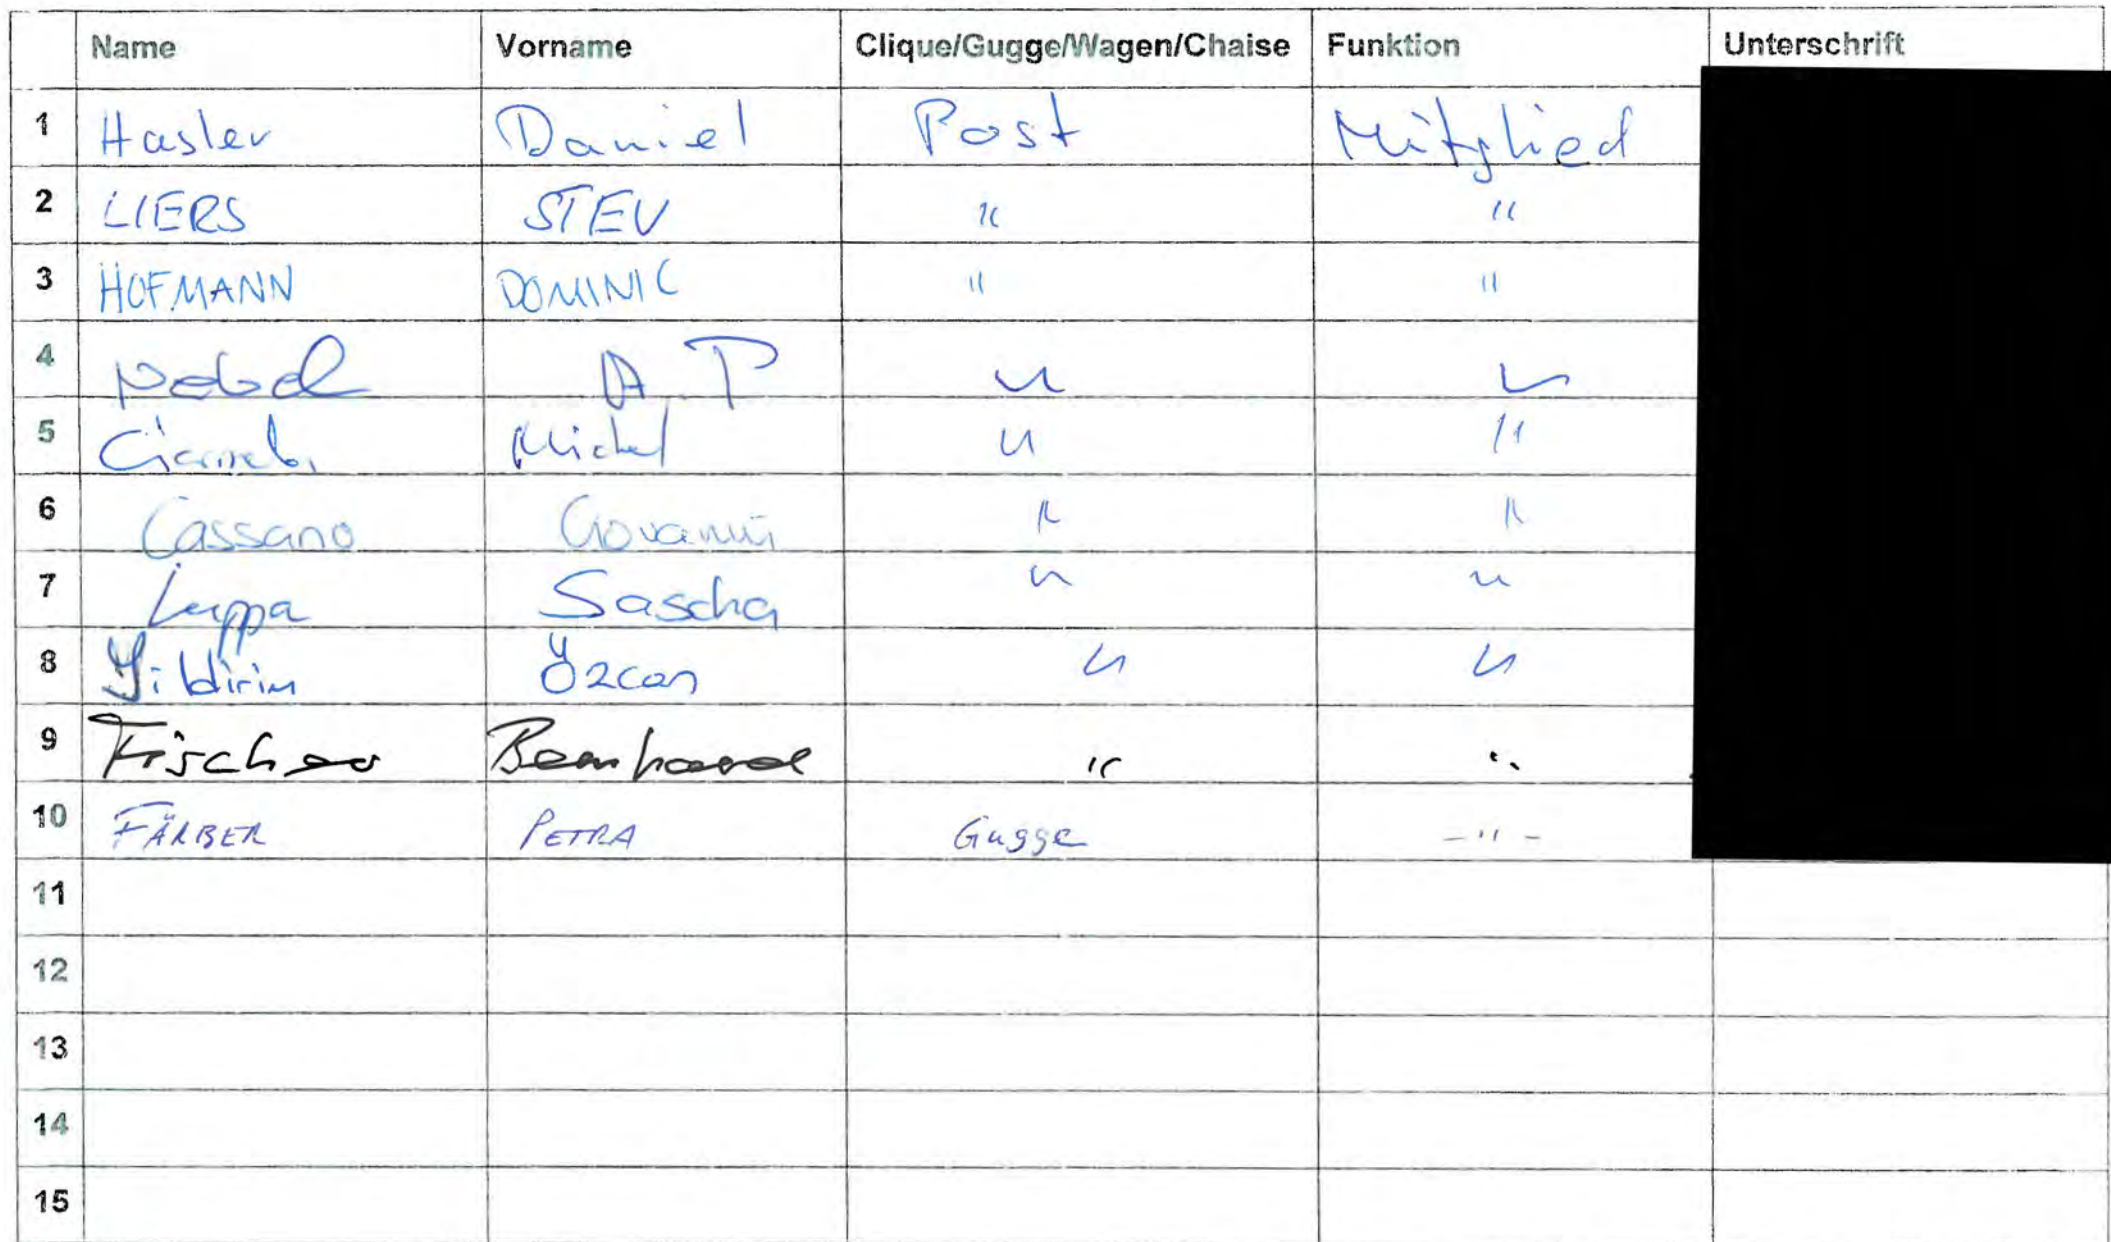 Name Vorname Clique/Gugge/Wagen/Chaise Funktion Unterschrift
1 Hasler Daniel Post Mitglied
2 LIERS STEV " "
3 HOFMANN DOMINIC " "
4 " "
5 Michel " "
6 Cassano Giovanni " "
7 Luppa Sascha " "
8 Yildirim Özcan " "
9 Fischer Bernhard " "
10 FÄRBER PETRA Gugge -"-
11
12
13
14
15